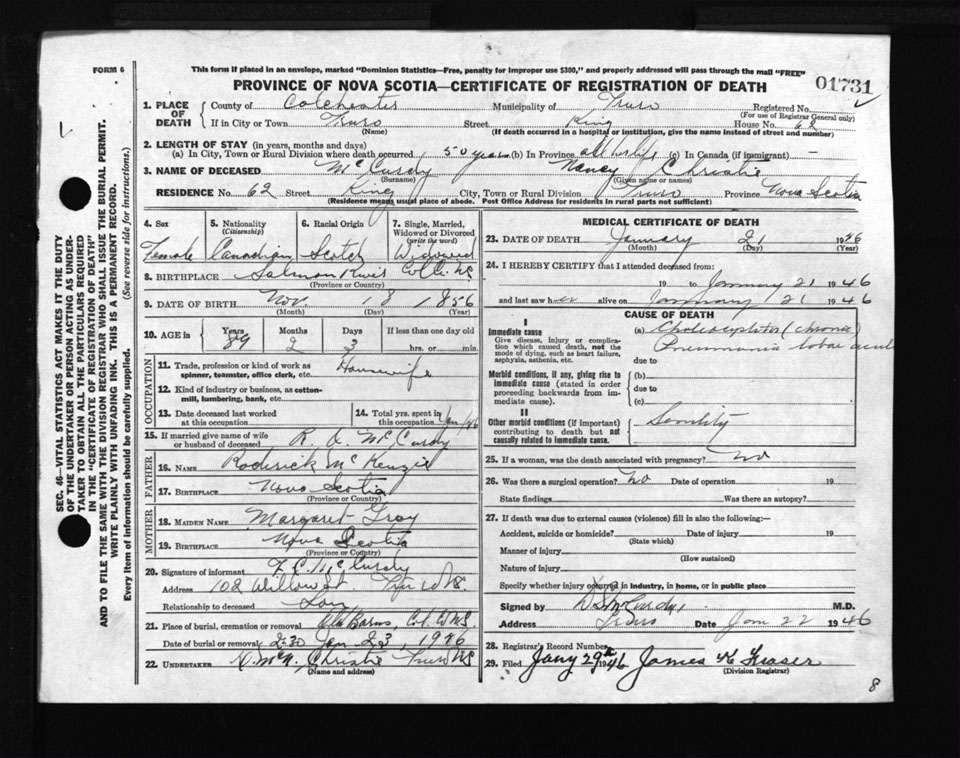 FORM 6
This form if placed in an envelope, marked "Dominion Statistics—Free, penalty for improper use $300," and properly addressed will pass through the mail "FREE"
PROVINCE OF NOVA SCOTIA—CERTIFICATE OF REGISTRATION OF DEATH
01731
SEC. 46—VITAL STATISTICS ACT MAKES IT THE DUTY
OF THE UNDERTAKER OR PERSON ACTING AS UNDER-
TAKER TO OBTAIN ALL THE PARTICULARS REQUIRED
IN THE "CERTIFICATE OF REGISTRATION OF DEATH"
AND TO FILE THE SAME WITH THE DIVISION REGISTRAR WHO SHALL ISSUE THE BURIAL PERMIT.
WRITE PLAINLY WITH UNFADING INK. THIS IS A PERMANENT RECORD.
Every item of Information should be carefully supplied. (See reverse side for instructions.)
1. PLACE OF DEATH County of Colchester Municipality of Truro Registered No.
(For use of Registrar General only)
If in City or Town Truro Street King House No. 62
(Name) (If death occurred in a hospital or institution, give the name instead of street and number)
2. LENGTH OF STAY (in years, months and days)
(a) In City, Town or Rural Division where death occurred 50 years (b) In Province all her life (c) In Canada (if immigrant) —
3. NAME OF DECEASED McCurdy Nancy Christie
(Surname) (Given name or names)
RESIDENCE No. 62 Street King City, Town or Rural Division Truro Province Nova Scotia
(Residence means usual place of abode. Post Office Address for residents in rural parts not sufficient)
4. Sex Female
5. Nationality (Citizenship) Canadian
6. Racial Origin Scotch
7. Single, Married, Widowed or Divorced (write the word) Widowed
8. BIRTHPLACE Salmon River Col Co. NS
(Province or Country)
9. DATE OF BIRTH Nov. 18 1856
(Month) (Day) (Year)
10. AGE in Years 89 Months 2 Days 3 If less than one day old hrs. or min.
OCCUPATION
11. Trade, profession or kind of work as spinner, teamster, office clerk, etc. Housewife
12. Kind of industry or business, as cotton-mill, lumbering, bank, etc.
13. Date deceased last worked at this occupation
14. Total yrs. spent in this occupation
15. If married give name of wife or husband of deceased R. A. McCurdy
FATHER
16. Name Roderick McKenzie
17. BIRTHPLACE Nova Scotia
(Province or Country)
MOTHER
18. MAIDEN NAME Margaret Gray
19. BIRTHPLACE Nova Scotia
(Province or Country)
20. Signature of informant F. C. McCurdy
Address 102 Willow St Truro NS.
Relationship to deceased Son
21. Place of burial, cremation or removal
Date of burial or removal 2-30 Jan 23 1946
22. UNDERTAKER Christie Truro NS
(Name and address)
MEDICAL CERTIFICATE OF DEATH
23. DATE OF DEATH January 21 1946
(Month) (Day) (Year)
24. I HEREBY CERTIFY that I attended deceased from:
19 to January 21 1946
and last saw her alive on January 21 1946
CAUSE OF DEATH
I
Immediate cause
Give disease, injury or complication which caused death, not the mode of dying, such as heart failure, asphyxia, asthenia, etc.
(a) Cholecystitis (chronic)
Pneumonia lobar acute
due to
Morbid conditions, if any, giving rise to immediate cause (stated in order proceeding backwards from immediate cause).
(b)
due to
(c)
II
Other morbid conditions (if important) contributing to death but not causally related to immediate cause.
Senility
25. If a woman, was the death associated with pregnancy? No
26. Was there a surgical operation? No Date of operation 19
State findings Was there an autopsy?
27. If death was due to external causes (violence) fill in also the following:—
Accident, suicide or homicide? Date of injury 19
(State which)
Manner of injury
(How sustained)
Nature of injury
Specify whether injury occurred in industry, in home, or in public place
Signed by McCurdy M.D.
Address Truro Date Jan 22 1946
28. Registrar's Record Number
29. Filed Jany 29th 1946 James K Fraser
(Division Registrar)
8